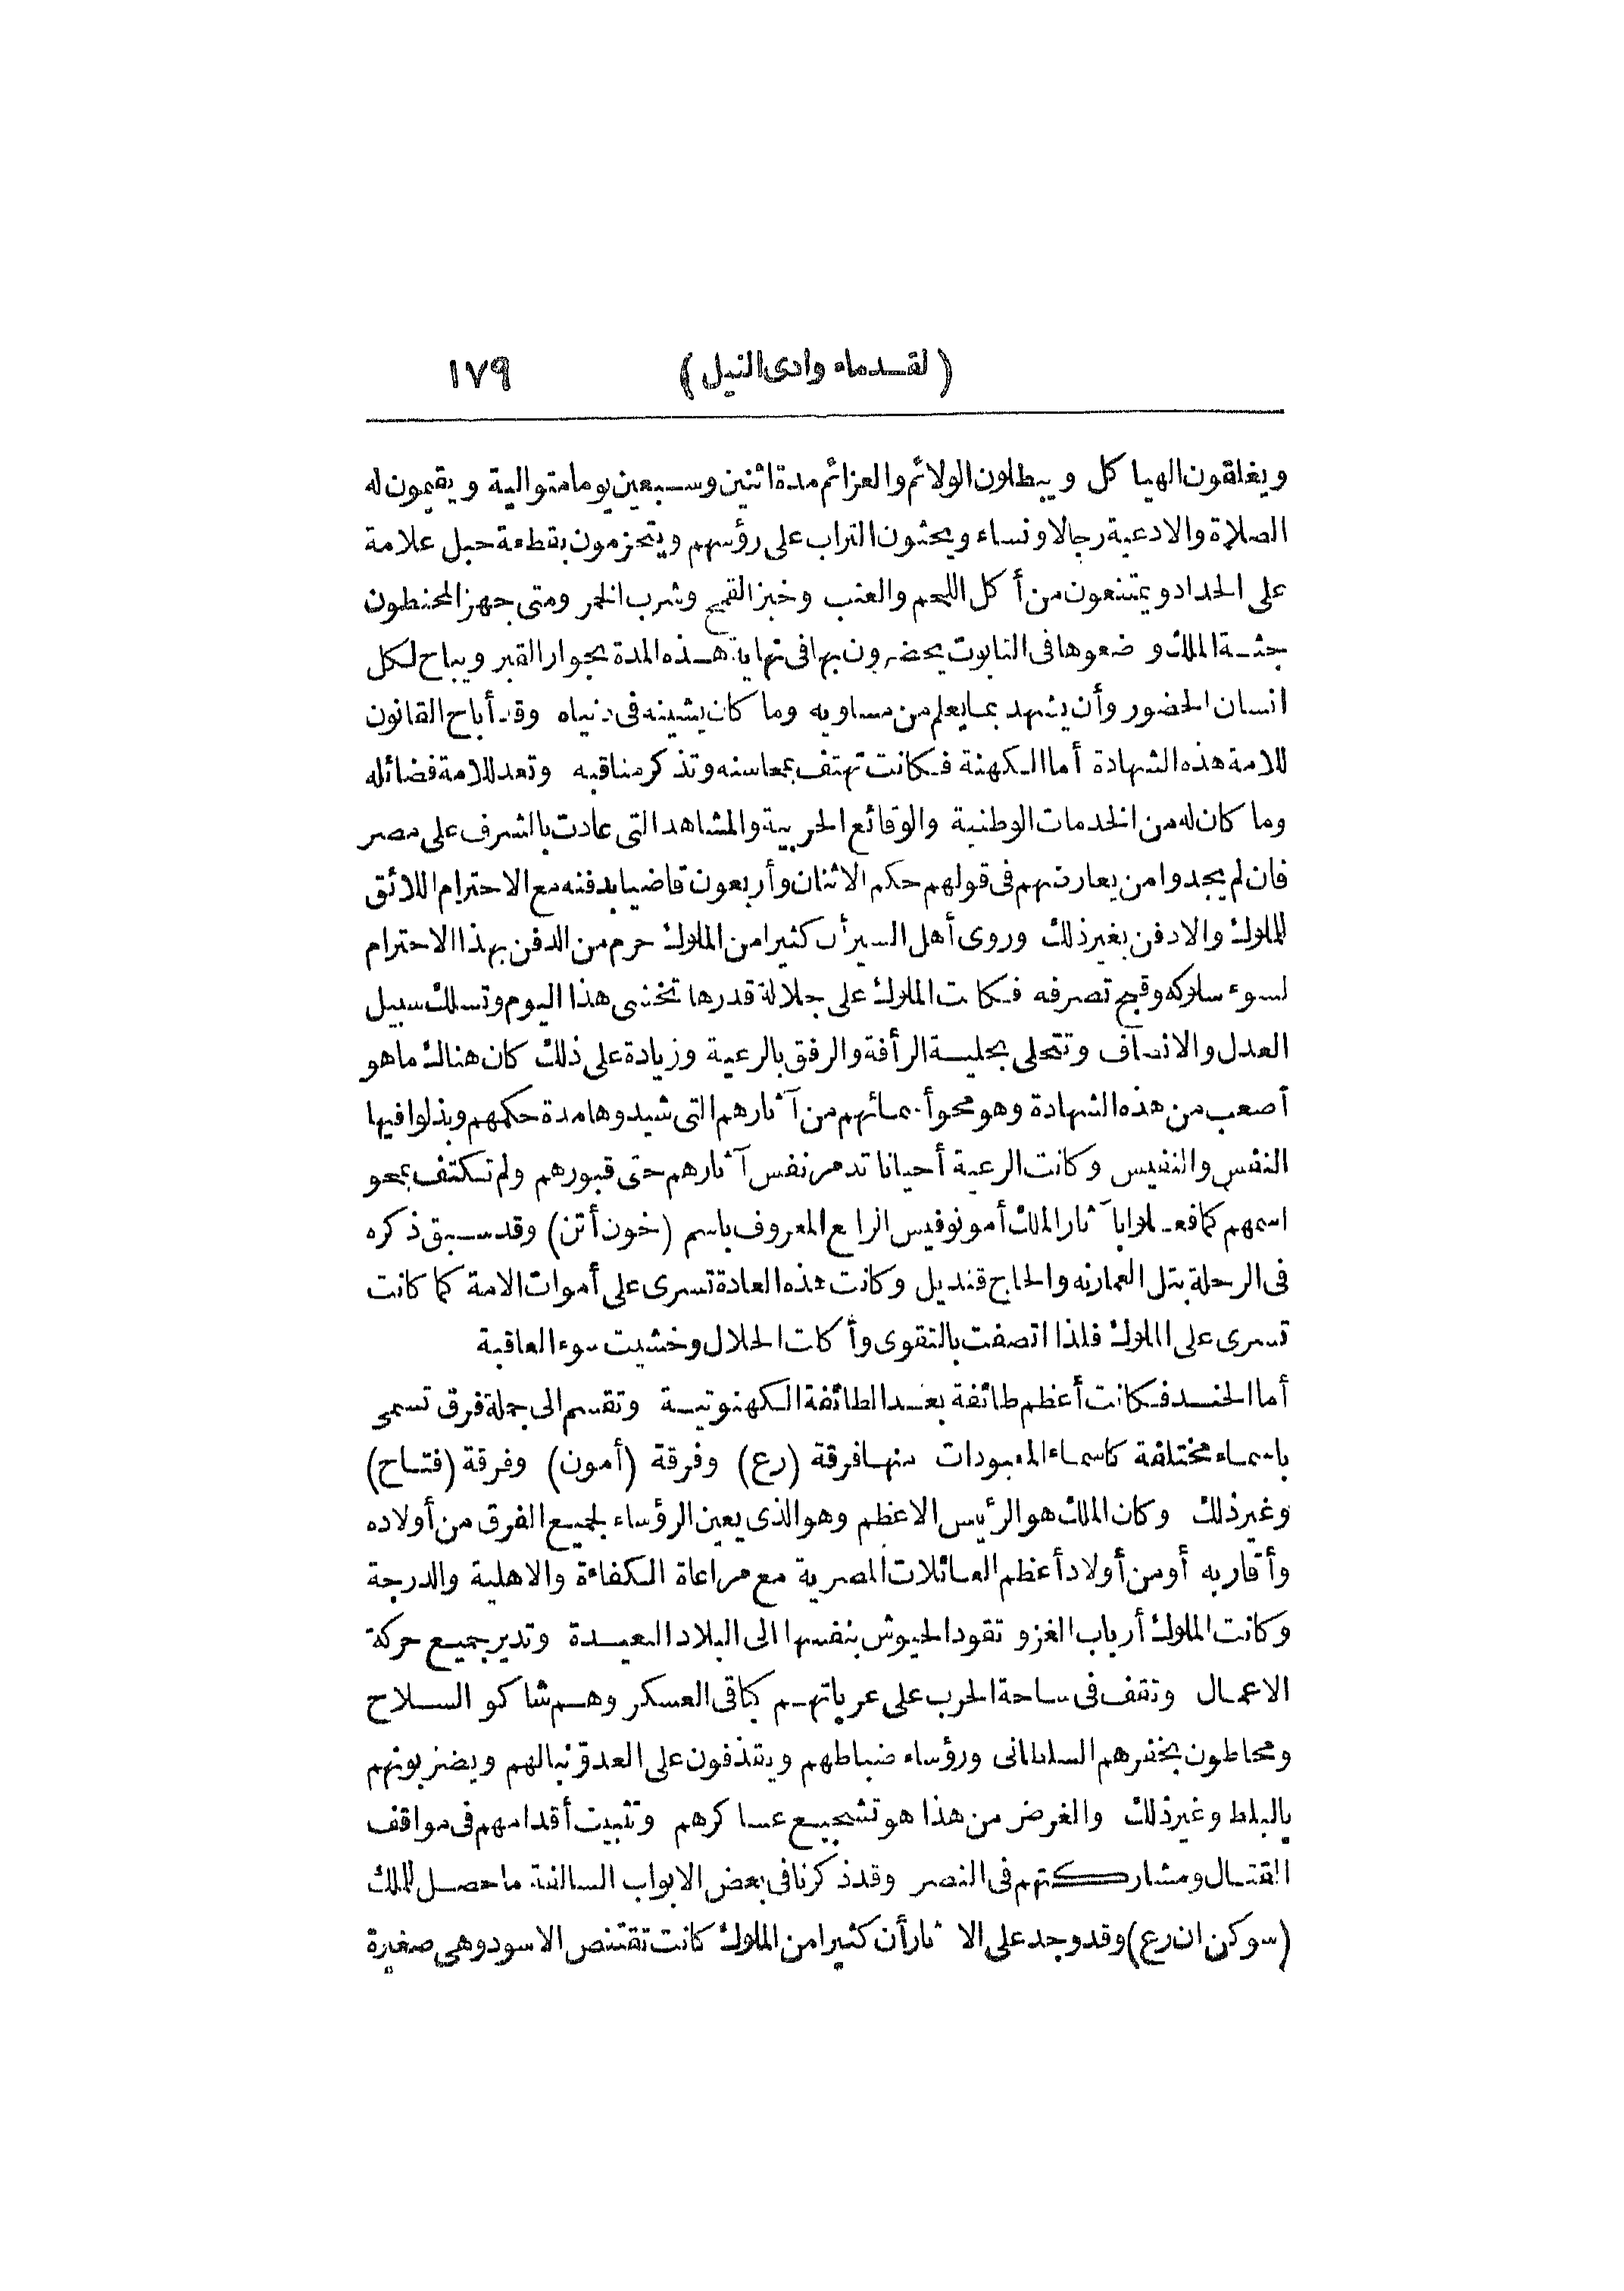 (لقدماء وادى النيل) ١٧٩
ويغلقون الهياكل ويبطلون الولائم والعزائم مدة اثنين وسبعين يوما متوالية ويقيمون له
الصلاة والادعية رجالا ونساء ويحثون التراب على رؤسهم ويتحزمون بقطعة حبل علامة
على الحداد ويمتنعون من أكل اللحم والعنب وخبز القمح وشرب الخمر ومتى جهز المحنطون
جثة الملك وضعوها فى التابوت يحضرون بها فى نهاية هذه المدة بجوار القبر ويباح لكل
انسان الحضور وأن يشهد بما يعلم من مساويه وما كان يشينه فى دنياه وقد أباح القانون
للامة هذه الشهادة أما الكهنة فكانت تهتف بمحاسنه وتذكر مناقبه وتعد للامة فضائله
وما كان له من الخدمات الوطنية والوقائع الحربية والمشاهد التى عادت بالشرف على مصر
فان لم يجدوا من يعارضهم فى قولهم حكم الاثنان وأربعون قاضيا بدفنه مع الاحترام اللائق
للملوك والا دفن بغير ذلك وروى أهل السير أن كثيرا من الملوك حرم من الدفن بهذا الاحترام
لسوء سلوكه وقبح تصرفه فكانت الملوك على جلالة قدرها تخشى هذا اليوم وتسلك سبيل
العدل والانصاف وتتحلى بحلية الرأفة والرفق بالرعية وزيادة على ذلك كان هناك ما هو
أصعب من هذه الشهادة وهو محو أسمائهم من آثارهم التى شيدوها مدة حكمهم وبذلوا فيها
النفس والنفيس وكانت الرعية أحيانا تدمر نفس آثارهم حتى قبورهم ولم تكتف بمحو
اسمهم كما فعلوا بآثار الملك أمونوفيس الرابع المعروف باسم (خون أتن) وقد سبق ذكره
فى الرحلة بتل العمارنه والحاج قنديل وكانت هذه العادة تسرى على أموات الامة كما كانت
تسرى على الملوك فلذا اتصفت بالتقوى وأكلت الحلال وخشيت سوء العاقبة
أما الجند فكانت أعظم طائفة بعد الطائفة الكهنوتية وتقسم الى جملة فرق تسمى
باسماء مختلفة كاسماء المعبودات منها فرقة (رع) وفرقة (أمون) وفرقة (فتاح)
وغير ذلك وكان الملك هو الرئيس الاعظم وهو الذى يعين الرؤساء لجميع الفرق من أولاده
وأقاربه أو من أولاد أعظم العائلات المصرية مع مراعاة الكفاءة والاهلية والدرجة
وكانت الملوك أرباب الغزو تقود الجيوش بنفسها الى البلاد البعيدة وتدير جميع حركة
الاعمال وتقف فى ساحة الحرب على عرباتهم كباقى العسكر وهم شاكو السلاح
ومحاطون بخفرهم السلطانى ورؤساء ضباطهم ويقذفون على العدو نبالهم ويضربونهم
بالبلط وغير ذلك والغرض من هذا هو تشجيع عساكرهم وتثبيت أقدامهم فى مواقف
القتال ومشاركتهم فى النصر وقد ذكرنا فى بعض الابواب السالفة ما حصل للملك
(سوكن ان رع) وقد وجد على الآثار أن كثيرا من الملوك كانت تقتنص الاسود وهى صغيرة